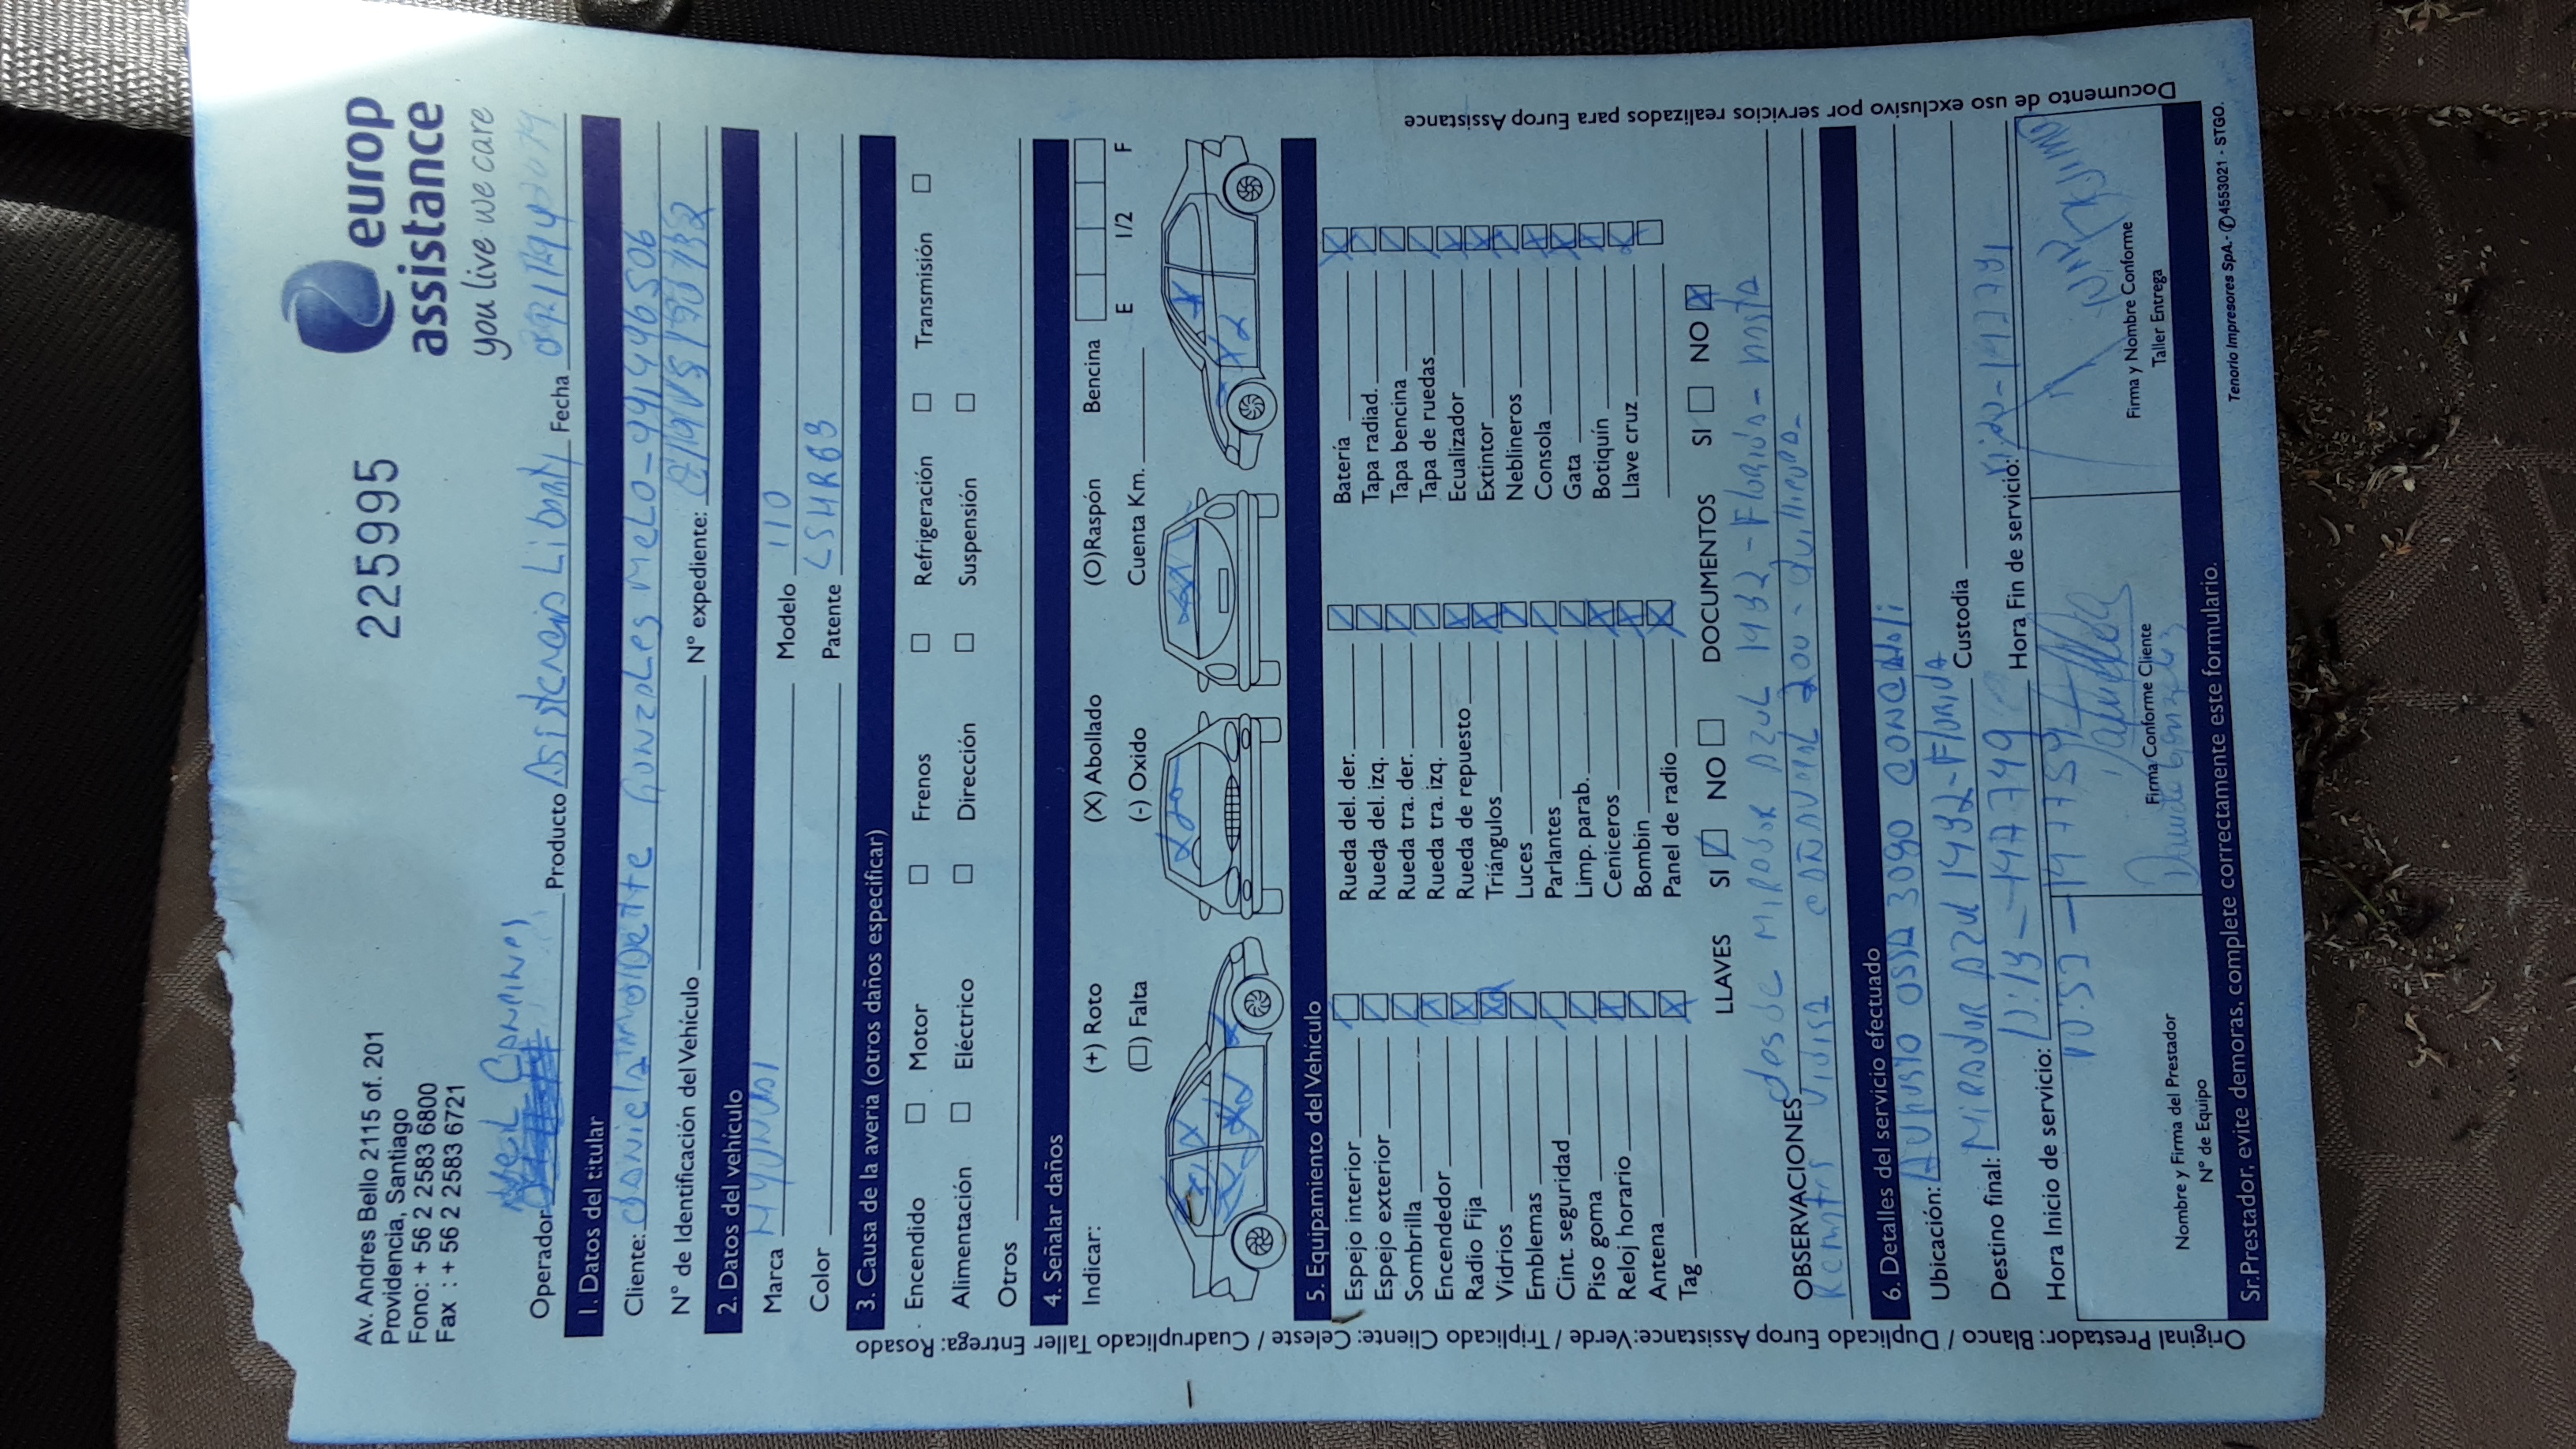 Av. Andres Bello 2115 of. 201
Providencia, Santiago
Fono: + 56 2 2583 6800
Fax : + 56 2 2583 6721
225995
europ
assistance
you live we care
Operador Producto Asistencia Fecha
1. Datos del titular
Cliente: Gonzales Melo - 991446506
N° de Identificación del Vehículo N° expediente:
2. Datos del vehículo
Marca HYUNDAI Modelo 110
Color Patente LSHR63
3. Causa de la avería (otros daños especificar)
Encendido Motor Frenos Refrigeración Transmisión
Alimentación Eléctrico Dirección Suspensión
Otros
4. Señalar daños
Indicar: (+) Roto (X) Abollado (O)Raspón Bencina E 1/2 F
(☐) Falta (-) Oxido Cuenta Km.
5. Equipamiento del Vehículo
Espejo interior Rueda del. der. Batería
Espejo exterior Rueda del. izq. Tapa radiad.
Sombrilla Rueda tra. der. Tapa bencina
Encendedor Rueda tra. izq. Tapa de ruedas
Radio Fija Rueda de repuesto Ecualizador
Vidrios Triángulos Extintor
Emblemas Luces Neblineros
Cint. seguridad Parlantes Consola
Piso goma Limp. parab. Gata
Reloj horario Ceniceros Botiquín
Antena Bombin Llave cruz
Tag Panel de radio
LLAVES SI NO DOCUMENTOS SI NO
OBSERVACIONES desde Mirador Azul 1432 - Florida - hasta
200 - Quilicura
6. Detalles del servicio efectuado
Ubicación: Augusto Ossa 3090 Conchali
Destino final: Mirador Azul 1432 - Florida Custodia
Hora Inicio de servicio: Hora Fin de servicio:
Nombre y Firma del Prestador
N° de Equipo
Firma Conforme Cliente
Firma y Nombre Conforme
Taller Entrega
Sr.Prestador, evite demoras, complete correctamente este formulario.
Tenorio Impresores SpA.- ✆4553021 - STGO.
Original Prestador: Blanco / Duplicado Europ Assistance:Verde / Triplicado Cliente: Celeste / Cuadruplicado Taller Entrega: Rosado
Documento de uso exclusivo por servicios realizados para Europ Assistance